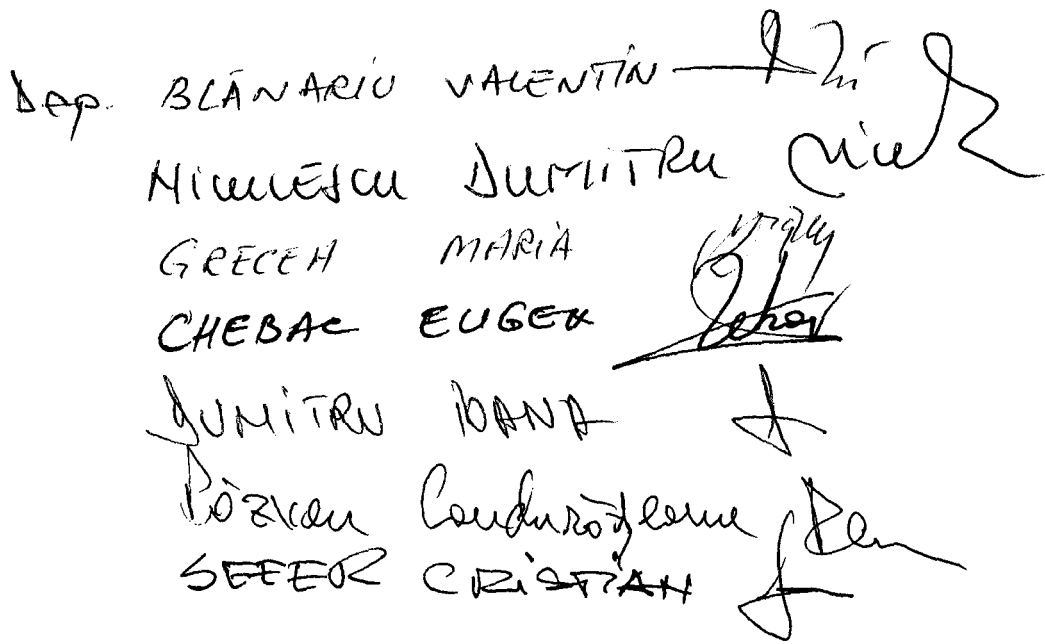 Dep. BLĂNARIU VALENTIN
NICULESCU DUMITRU
GRECEA MARIA
CHEBAC EUGEN
DUMITRU IOANA
Răzvan Condurățeanu
SEFER CRISTIAN